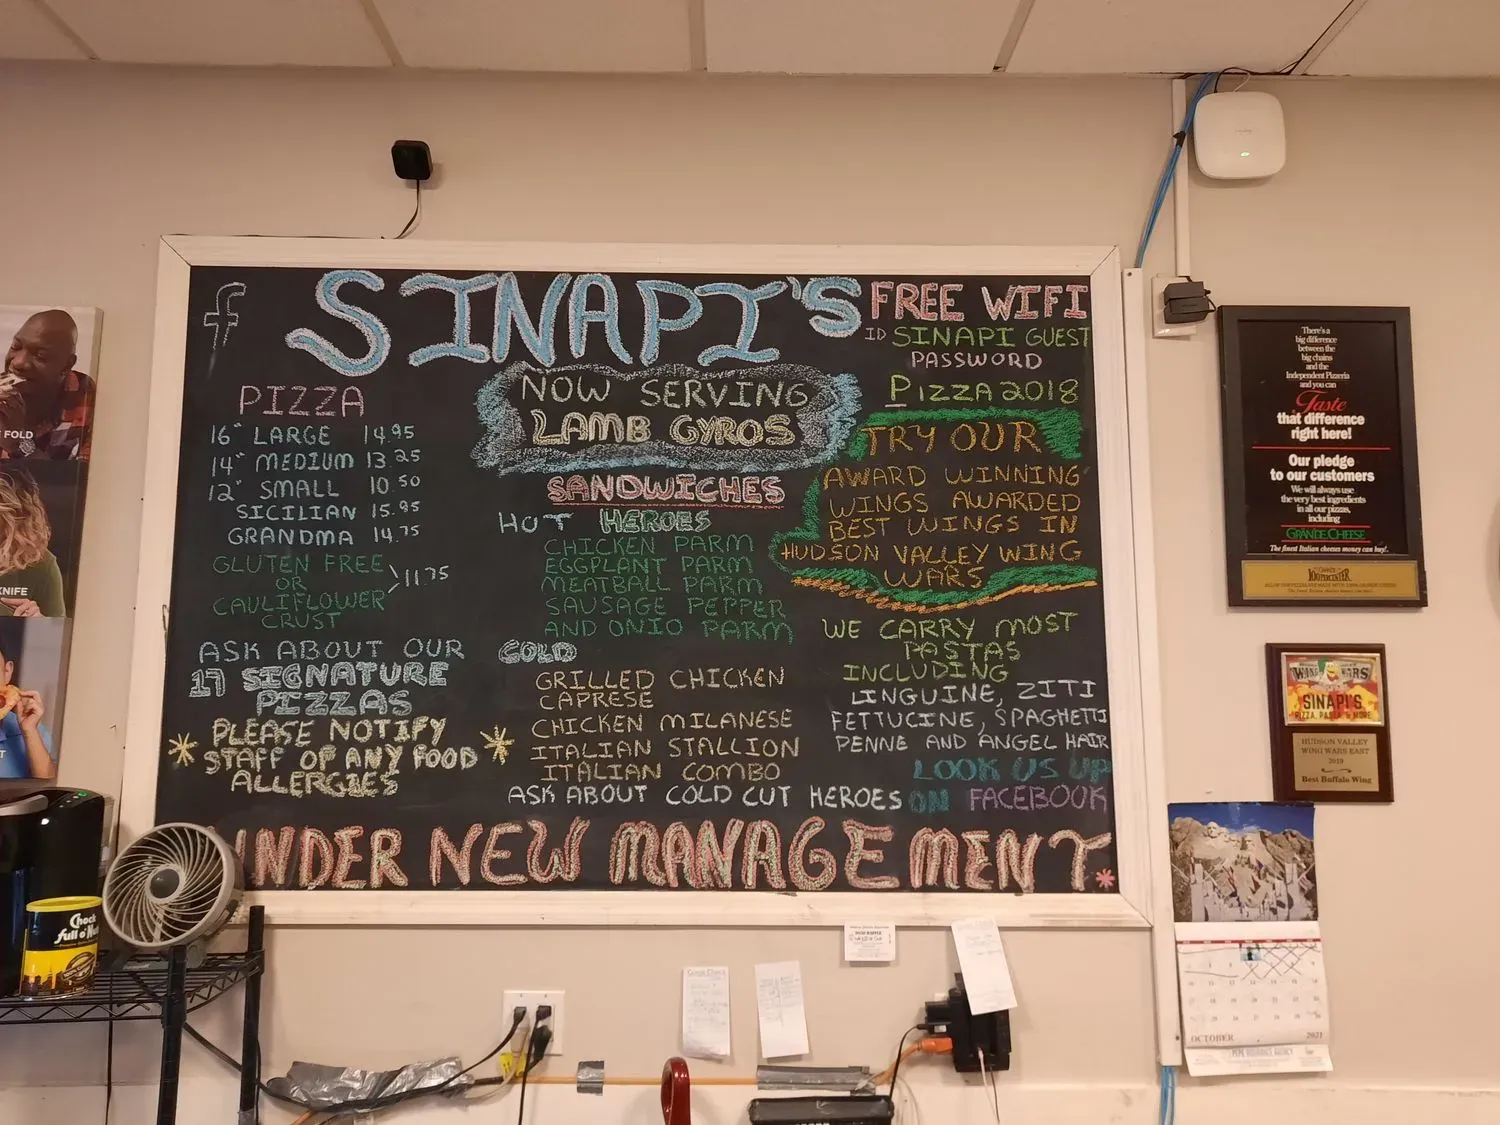 SINAPI'S
FREE WIFI
ID SINAPI GUEST
PASSWORD
PIZZA2018
PIZZA
16" LARGE 14.95
14" MEDIUM 13.25
12" SMALL 10.50
SICILIAN 15.95
GRANDMA 14.75
GLUTEN FREE
OR
CAULIFLOWER
CRUST
>11.75
ASK ABOUT OUR
17 SIGNATURE
PIZZAS
* PLEASE NOTIFY *
STAFF OF ANY FOOD
ALLERGIES
NOW SERVING
LAMB GYROS
SANDWICHES
HOT HEROES
CHICKEN PARM
EGGPLANT PARM
MEATBALL PARM
SAUSAGE PEPPER
AND ONIO PARM
COLD
GRILLED CHICKEN
CAPRESE
CHICKEN MILANESE
ITALIAN STALLION
ITALIAN COMBO
ASK ABOUT COLD CUT HEROES
TRY OUR
AWARD WINNING
WINGS AWARDED
BEST WINGS IN
HUDSON VALLEY WING
WARS
WE CARRY MOST
PASTAS
INCLUDING
LINGUINE, ZITI
FETTUCINE, SPAGHETTI
PENNE AND ANGEL HAIR
LOOK US UP
ON FACEBOOK
UNDER NEW MANAGEMENT *
There's a
big difference
between the
big chains
and the
Independent Pizzeria
and you can
Taste
that difference
right here!
Our pledge
to our customers
We will always use
the very best ingredients
in all our pizzas,
including
GRANDE CHEESE
The finest Italian cheeses money can buy!.
WING WARS
SINAPI'S
PIZZA, PASTA & MORE
HUDSON VALLEY
WING WARS EAST
2019
Best Buffalo Wing
OCTOBER 2021
FOLD
KNIFE
Chock
full o'Nuts